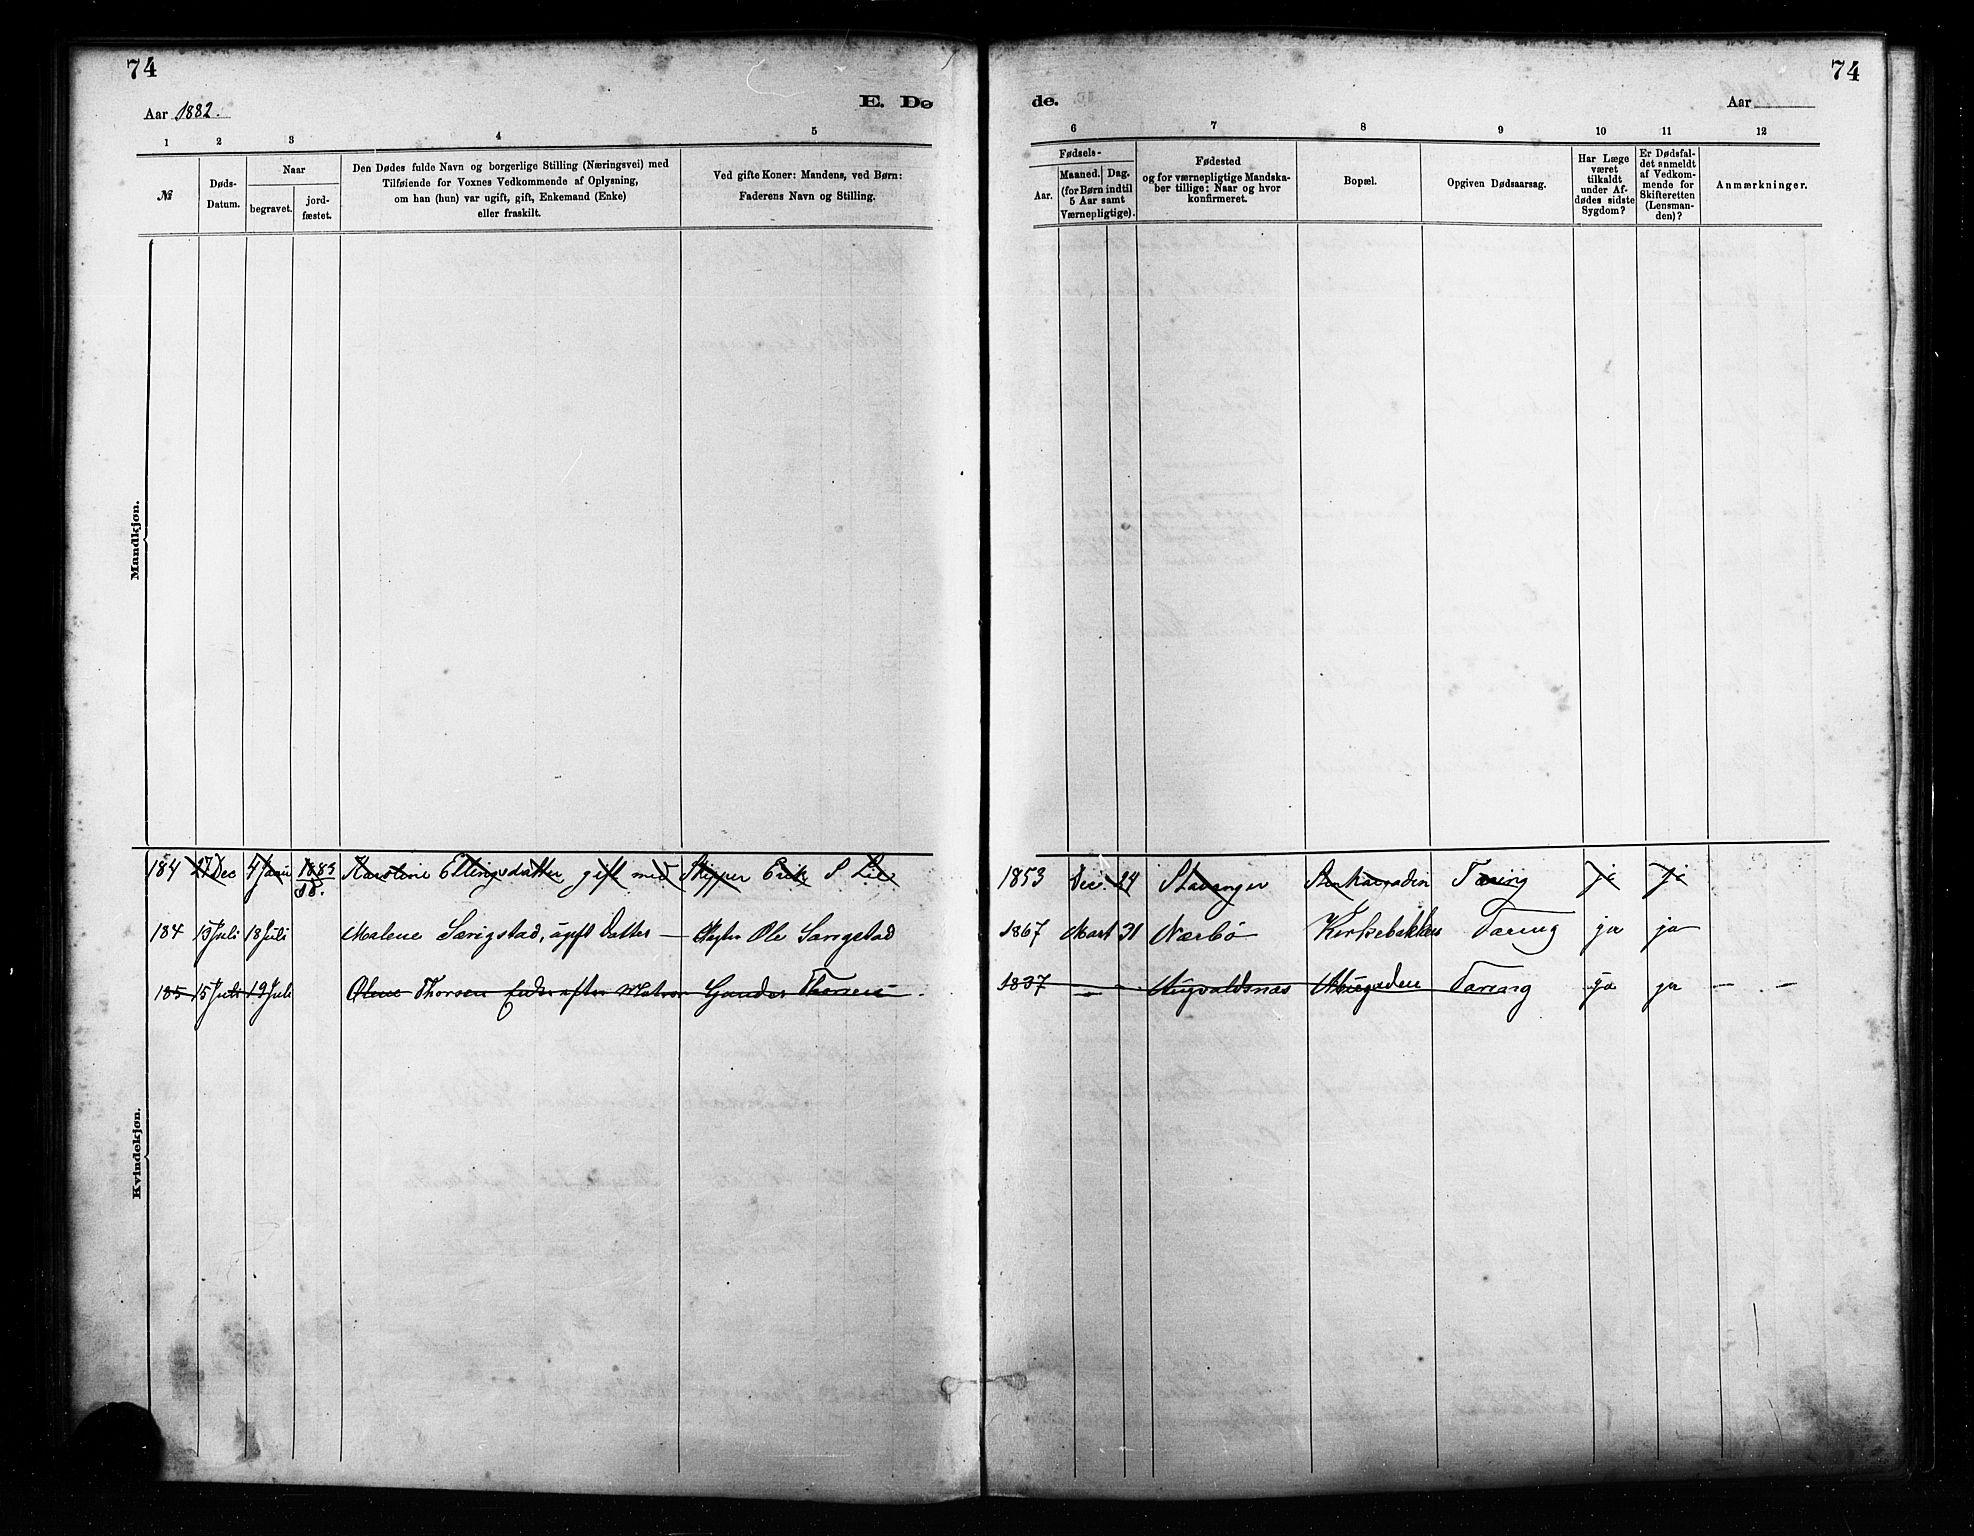 74
74
Aar 1882.
E. Dø
de.
Aar
1 2 3 4 5
6 7 8 9 10 11 12
№
Døds-
Datum.
Naar
begravet.
jord-
fæstet.
Den Dødes fulde Navn og borgerlige Stilling (Næringsvei) med
Tilføiende for Voxnes Vedkommende af Oplysning,
om han (hun) var ugift, gift, Enkemand (Enke)
eller fraskilt.
Ved gifte Koner: Mandens, ved Børn:
Faderens Navn og Stilling.
Fødsels-
Aar.
Maaned. Dag.
(for Børn indtil
5 Aar samt
Værnepligtige).
Fødested
og for værnepligtige Mandska-
ber tillige: Naar og hvor
konfirmeret.
Bopæl.
Opgiven Dødsaarsag.
Har Læge
været
tilkaldt
under Af-
dødes sidste
Sygdom?
Er Dødsfal-
det anmeldt
af Vedkom-
mende for
Skifteretten
(Lensman-
den)?
Anmærkninger.
Mandkjøn.
184 27 Dec 4 Janu 1883 Karoline Ellingsdatter gift med Skipper Erik S Lie 1853 Dec. 24 Stavanger Tæring ja ja
184 13 Juli 18 Juli Malene Særigstad, ugift Datter — Ole Særigstad 1867 Mart 31 Nærbö Kirkebakken Tæring ja ja
185 15 Juli 19 Juli Olene Thorsen Enke efter Matros Gunder Thorsen 1837 — - Augvaldsnæs Tæring ja ja — -
Kvindekjøn.